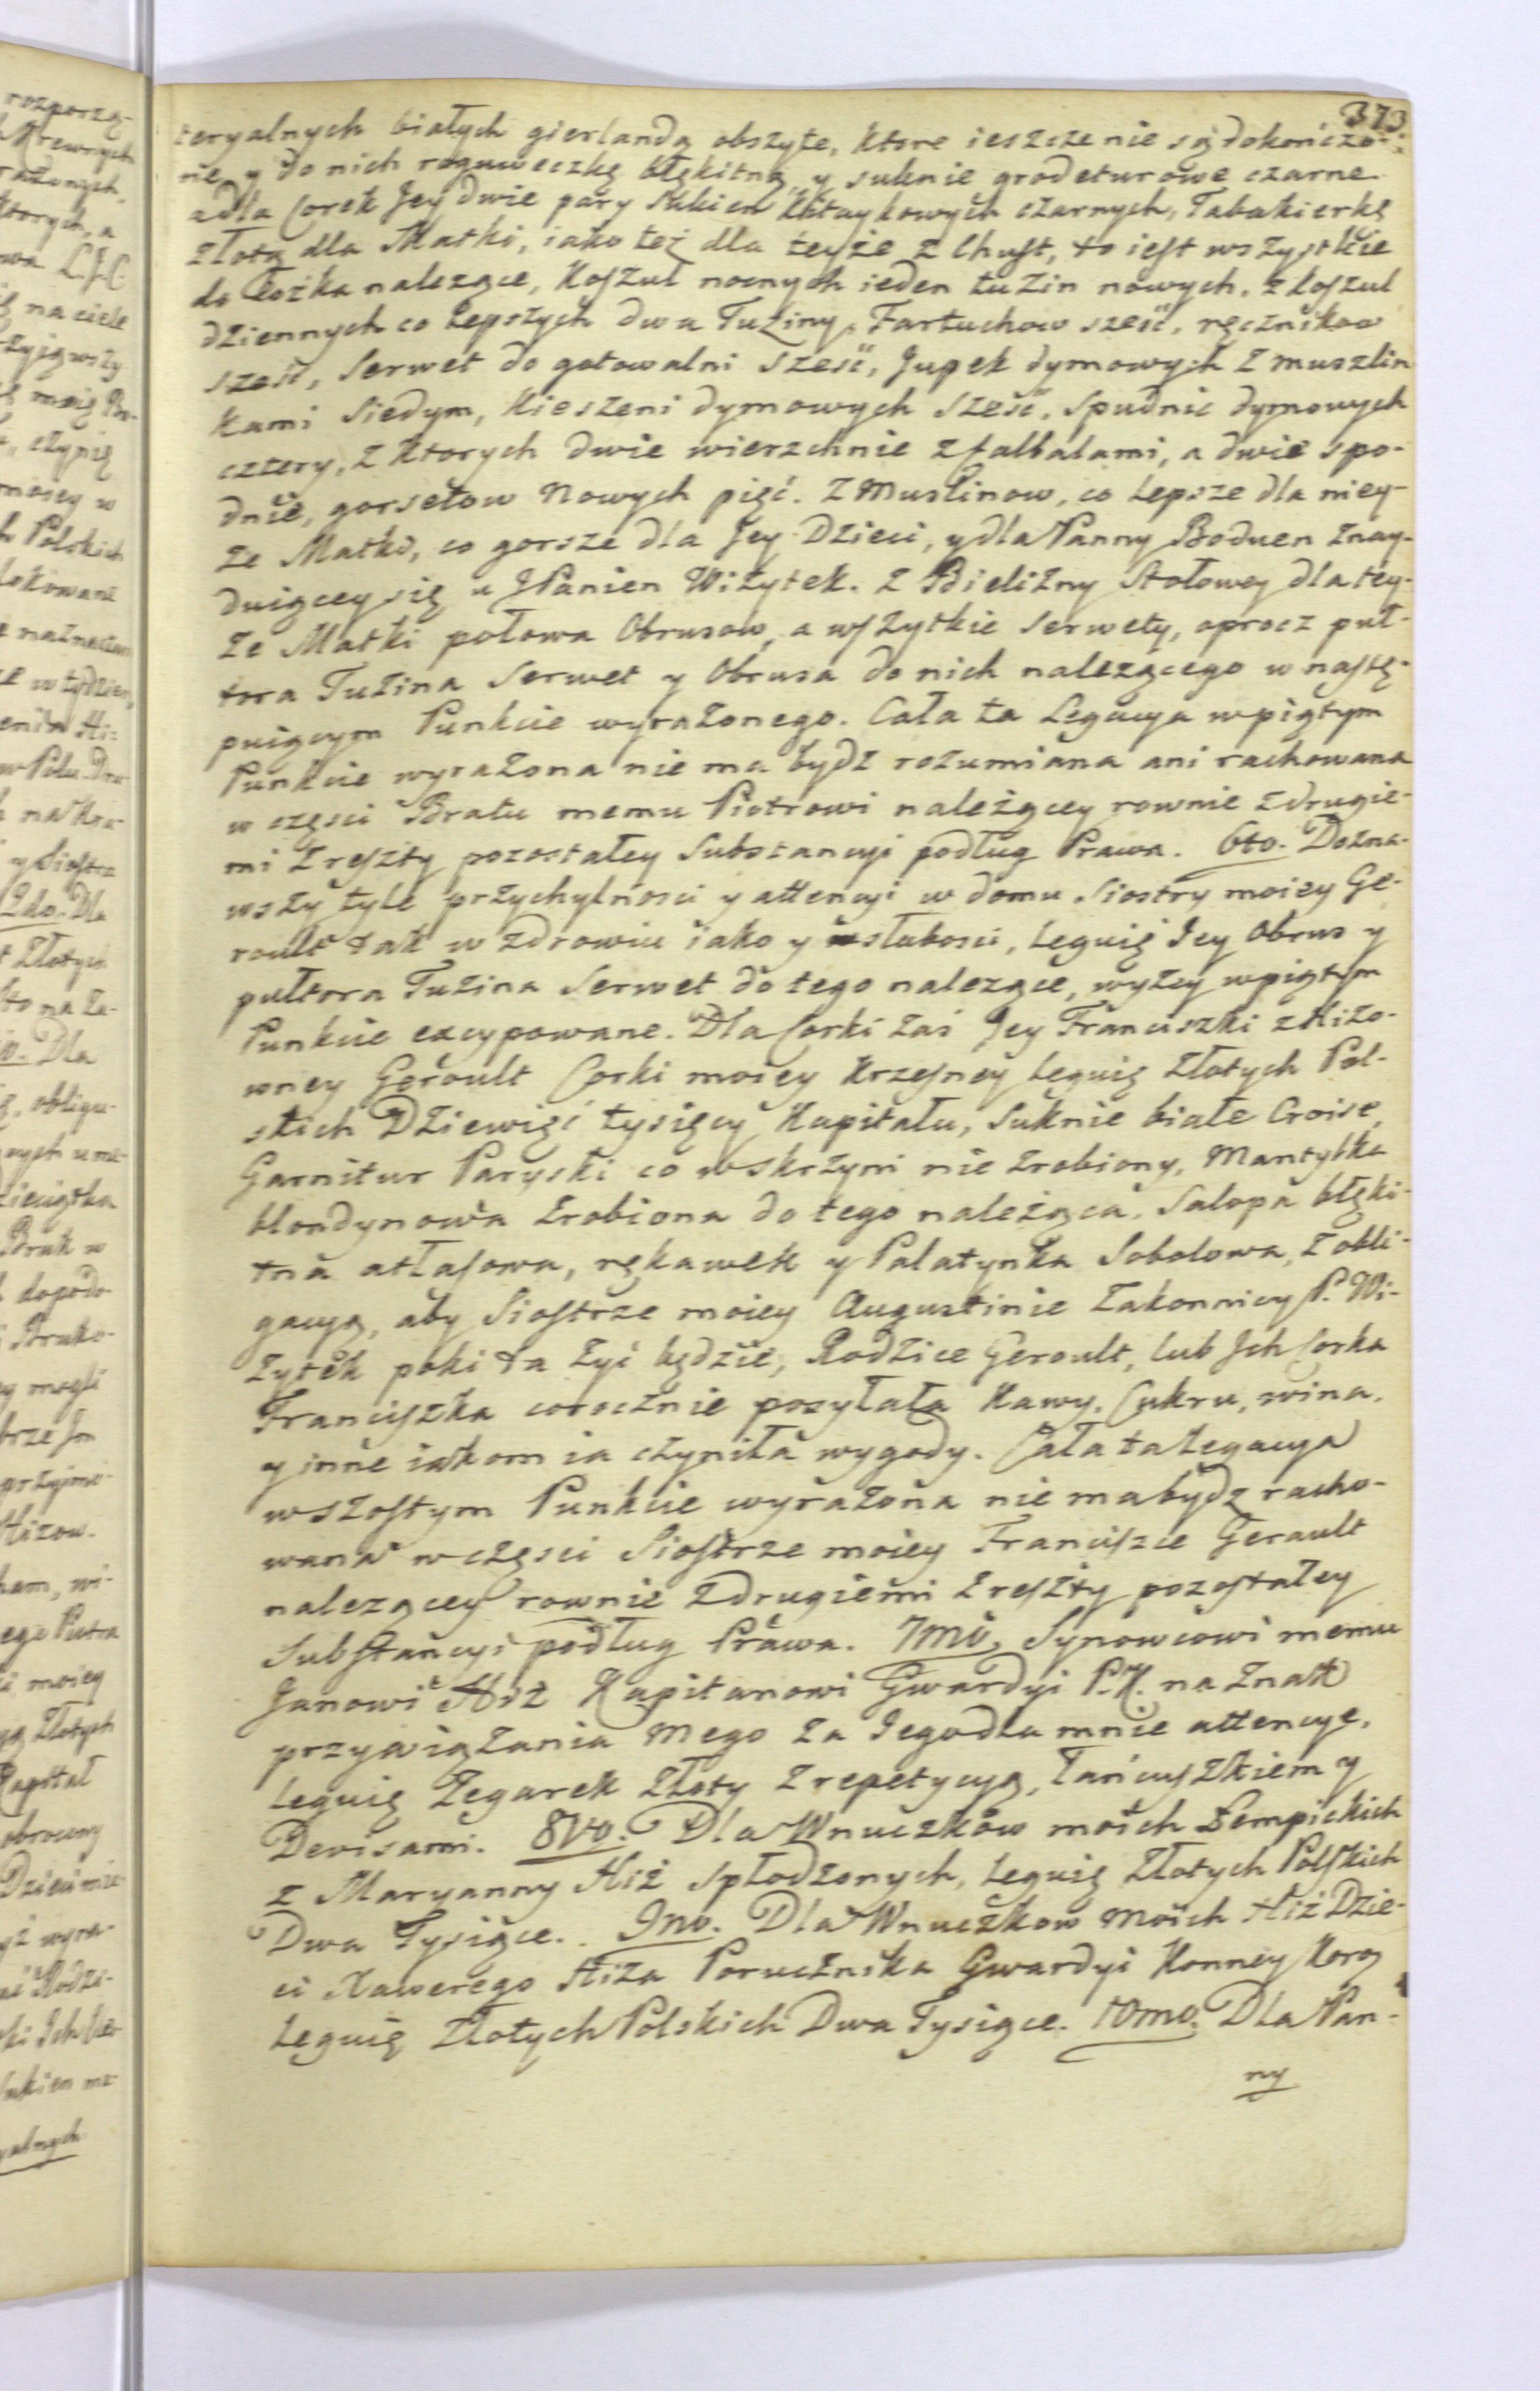 373
teryalnych białych gierlandą obszyte, ktore ieszcze nie są dokończo-
ne, y do nich roguweczkę błękitną, y suknie grodeturowe czarne
a dla Corek Jey dwie pary sukien kitaykowych czarnych, Tabakierkę
złotą dla Matki, iako też dla teyże z Chust, to iest wszystkie
do Łożka nalezące, Koszul nocnych ieden tuzin nowych, z koszul
dziennych co lepszych dwa Tuziny, Fartuchow sześć, ręcznikow
sześć, Serwet do gotowalni sześć, Jupek dymowych z muszlin
kami siedym, kieszeni dymowych sześć, Spudnic dymowych
cztery, z ktorych dwie wierzchnie z falbalami, a dwie spo-
dnie, gorsetow Nowych pięć. Z Muslinow, co lepsze dla niey-
że Matki, co gorsze dla Jey Dzieci, y dla Panny Boduen znay-
duiącey się u JPanien Wizytek. Z Bielizny Stołowey dla tey-
że Matki połowa Obrusow, a wszytkie Serwety, oprocz puł-
tora Tuzina Serwet y Obrusa do nich nalezącego w nastę-
puiącym Punkcie wyrażonego. Cała ta Legacya w piątym
Punkcie wyrażona nie ma bydz rozumiana ani rachowana
w częsci Bratu memu Piotrowi należącey rownie z drugie-
mi z reszty pozostałey Substancyi podług Prawa. 6to. Dozna-
wszy tyle przychylnosci y attencyi w domu Siostry moiey Ge-
roult tak w zdrowiu iako y słabosci, leguię Jey Obrus y
pułtora Tuzina Serwet do tego nalezące, wyżey w piątym
Punkcie excypowane. Dla Corki zaś Jey Franciszki z Hizo-
wney Geroult Corki moiey Krzesney leguię Złotych Pol-
skich Dziewięć tysięcy Kapitału, Suknie białe Croise,
Garnitur Paryski co w skrzyni nie zrobiony, Mantylka
blondynowa zrobiona do tego należąca, Salopa błęki-
tna atłasowa, rękawek y Palatynka Sobolowa, z obli-
gacyą, aby Siostrze moiey Augustinie Zakonnicy P. Wi-
zytek poki ta żyć będzie, Rodzice Geroult, lub Jch Corka
Franciszka corocznie posyłała Kawy, Cukru, wina,
y inne iakom ia czyniła wygody. Cała ta Legacya
w szostym Punkcie wyrażona nie ma bydz racho-
wana w częsci Siostrze moiey Franciszce Gerault
nalezącey rownie z drugiemi z reszty pozostałey
Substancyi podług Prawa. 7mo, Synowcowi memu
Janowi Hiż Kapitanowi Gwardyi P.K. na znak
przywiązania Mego za Jego dla mnie attencyę,
leguię Zegarek złoty z repetycyą, łańcuszkiem y
Devisami. 8vo. Dla Wnuczkow moich Łempickich
z Maryanny Hiż spłodzonych, leguię Złotych Polskich
Dwa Tysiące. 9no. Dla Wnuczkow moich Hiż Dzie-
ci Xawerego Hiza Porucznika Gwardyi Konney Koro
leguię Złotych Polskich Dwa Tysiące. 10mo. Dla Pan-
ny